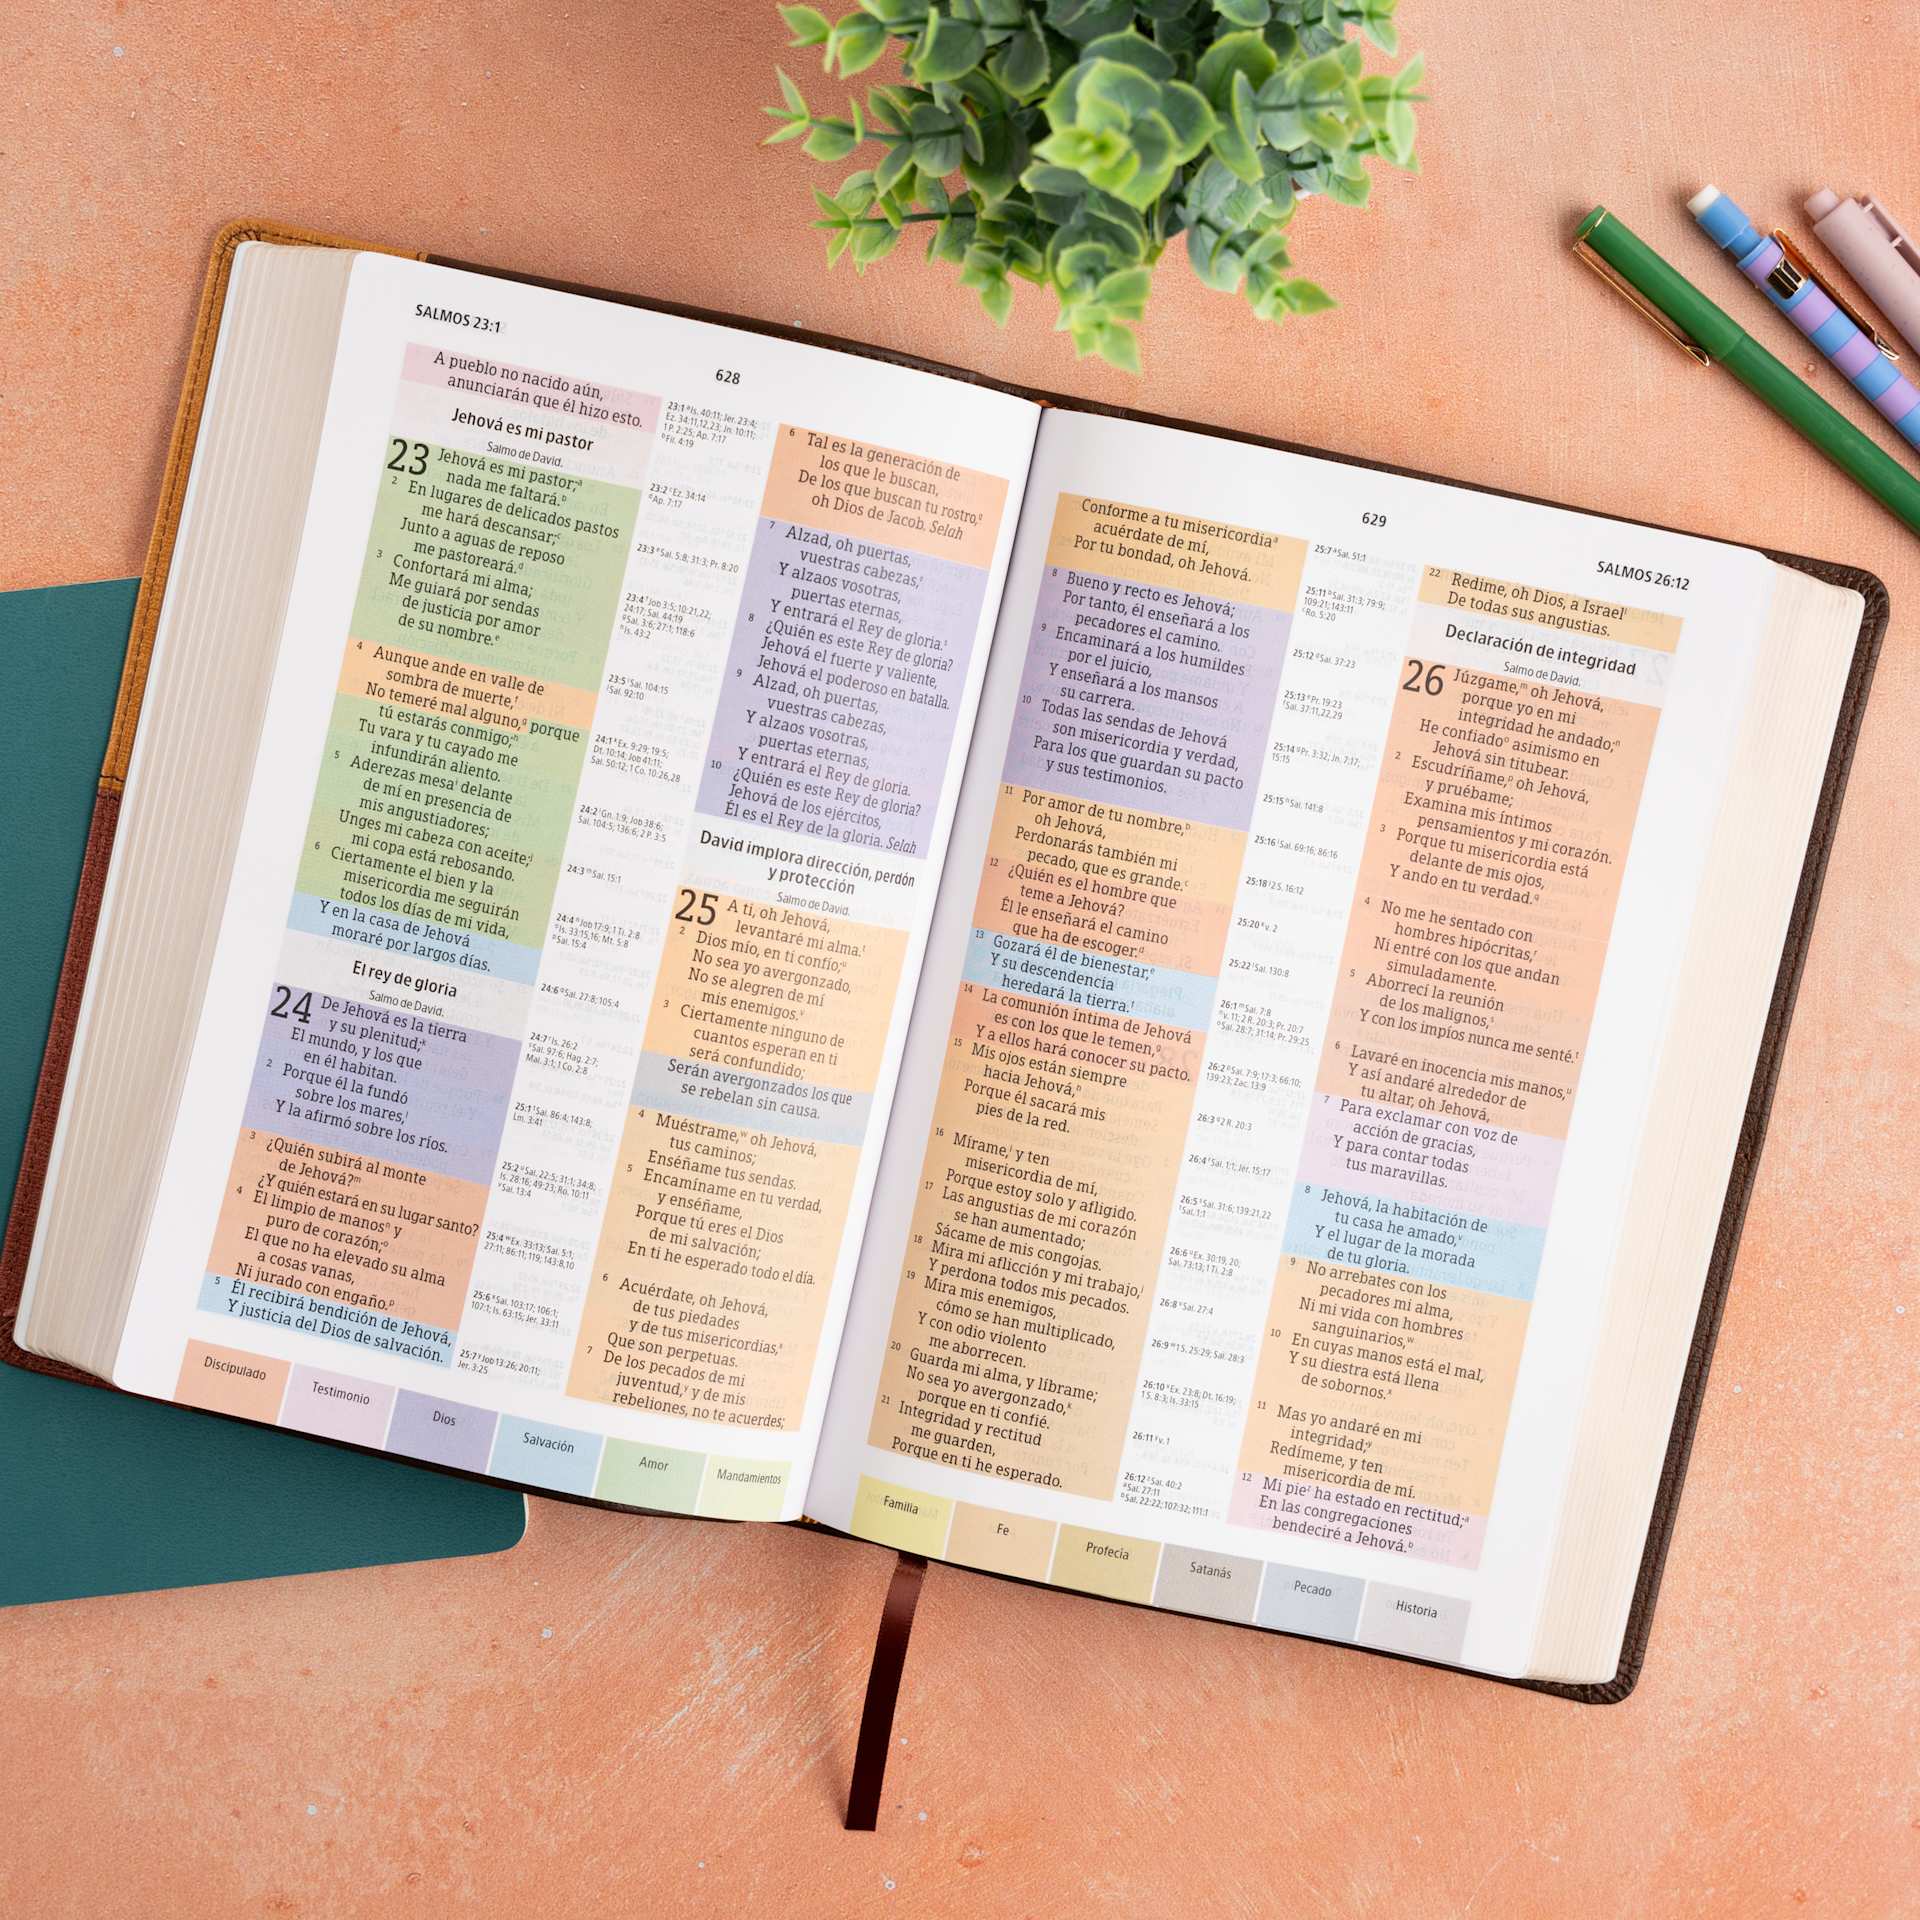 SALMOS 23:1
628
A pueblo no nacido aún,
anunciarán que él hizo esto.
Jehová es mi pastor
Salmo de David.
23 Jehová es mi pastor;a
nada me faltará.b
2 En lugares de delicados pastos
me hará descansar;c
Junto a aguas de reposo
me pastoreará.d
3 Confortará mi alma;
Me guiará por sendas
de justicia por amor
de su nombre.e
4 Aunque ande en valle de
sombra de muerte,f
No temeré mal alguno,g porque
tú estarás conmigo;h
Tu vara y tu cayado me
infundirán aliento.
5 Aderezas mesai delante
de mí en presencia de
mis angustiadores;
Unges mi cabeza con aceite;j
mi copa está rebosando.
6 Ciertamente el bien y la
misericordia me seguirán
todos los días de mi vida,
Y en la casa de Jehová
moraré por largos días.
El rey de gloria
Salmo de David.
24 De Jehová es la tierra
y su plenitud;k
El mundo, y los que
en él habitan.
2 Porque él la fundó
sobre los mares,l
Y la afirmó sobre los ríos.
3 ¿Quién subirá al monte
de Jehová?m
¿Y quién estará en su lugar santo?
4 El limpio de manosn y
puro de corazón;o
El que no ha elevado su alma
a cosas vanas,
Ni jurado con engaño.p
5 Él recibirá bendición de Jehová,
Y justicia del Dios de salvación.
23:1 aIs. 40:11; Jer. 23:4;
Ez. 34:11,12,23; Jn. 10:11;
1 P. 2:25; Ap. 7:17
bFil. 4:19
23:2 cEz. 34:14
dAp. 7:17
23:3 eSal. 5:8; 31:3; Pr. 8:20
23:4 fJob 3:5; 10:21,22;
24:17; Sal. 44:19
gSal. 3:6; 27:1; 118:6
hIs. 43:2
23:5 iSal. 104:15
jSal. 92:10
24:1 kEx. 9:29; 19:5;
Dt. 10:14; Job 41:11;
Sal. 50:12; 1 Co. 10:26,28
24:2 lGn. 1:9; Job 38:6;
Sal. 104:5; 136:6; 2 P. 3:5
24:3 mSal. 15:1
24:4 nJob 17:9; 1 Ti. 2:8
oIs. 33:15,16; Mt. 5:8
pSal. 15:4
24:6 qSal. 27:8; 105:4
24:7 rIs. 26:2
sSal. 97:6; Hag. 2:7;
Mal. 3:1; 1 Co. 2:8
25:1 tSal. 86:4; 143:8;
Lm. 3:41
25:2 uSal. 22:5; 31:1; 34:8;
Is. 28:16; 49:23; Ro. 10:11
vSal. 13:4
25:4 wEx. 33:13; Sal. 5:1;
27:11; 86:11; 119; 143:8,10
25:6 xSal. 103:17; 106:1;
107:1; Is. 63:15; Jer. 33:11
25:7 yJob 13:26; 20:11;
Jer. 3:25
6 Tal es la generación de
los que le buscan,
De los que buscan tu rostro,q
oh Dios de Jacob. Selah
7 Alzad, oh puertas,
vuestras cabezas,r
Y alzaos vosotras,
puertas eternas,
Y entrará el Rey de gloria.s
8 ¿Quién es este Rey de gloria?
Jehová el fuerte y valiente,
Jehová el poderoso en batalla.
9 Alzad, oh puertas,
vuestras cabezas,
Y alzaos vosotras,
puertas eternas,
Y entrará el Rey de gloria.
10 ¿Quién es este Rey de gloria?
Jehová de los ejércitos,
Él es el Rey de la gloria. Selah
David implora dirección, perdón
y protección
Salmo de David.
25 A ti, oh Jehová,
levantaré mi alma.t
2 Dios mío, en ti confío;u
No sea yo avergonzado,
No se alegren de mí
mis enemigos.v
3 Ciertamente ninguno de
cuantos esperan en ti
será confundido;
Serán avergonzados los que
se rebelan sin causa.
4 Muéstrame,w oh Jehová,
tus caminos;
Enséñame tus sendas.
5 Encamíname en tu verdad,
y enséñame,
Porque tú eres el Dios
de mi salvación;
En ti he esperado todo el día.
6 Acuérdate, oh Jehová,
de tus piedades
y de tus misericordias,x
Que son perpetuas.
7 De los pecados de mi
juventud,y y de mis
rebeliones, no te acuerdes;
Discipulado
Testimonio
Dios
Salvación
Amor
Mandamientos
629
SALMOS 26:12
Conforme a tu misericordiaa
acuérdate de mí,
Por tu bondad, oh Jehová.
8 Bueno y recto es Jehová;
Por tanto, él enseñará a los
pecadores el camino.
9 Encaminará a los humildes
por el juicio,
Y enseñará a los mansos
su carrera.
10 Todas las sendas de Jehová
son misericordia y verdad,
Para los que guardan su pacto
y sus testimonios.
11 Por amor de tu nombre,b
oh Jehová,
Perdonarás también mi
pecado, que es grande.c
12 ¿Quién es el hombre que
teme a Jehová?
Él le enseñará el camino
que ha de escoger.d
13 Gozará él de bienestar,e
Y su descendencia
heredará la tierra.f
14 La comunión íntima de Jehová
es con los que le temen,g
Y a ellos hará conocer su pacto.
15 Mis ojos están siempre
hacia Jehová,h
Porque él sacará mis
pies de la red.
16 Mírame,i y ten
misericordia de mí,
Porque estoy solo y afligido.
17 Las angustias de mi corazón
se han aumentado;
Sácame de mis congojas.
18 Mira mi aflicción y mi trabajo,j
Y perdona todos mis pecados.
19 Mira mis enemigos,
cómo se han multiplicado,
Y con odio violento
me aborrecen.
20 Guarda mi alma, y líbrame;
No sea yo avergonzado,k
porque en ti confié.
21 Integridad y rectitud
me guarden,
Porque en ti he esperado.
25:7 aSal. 51:1
25:11 bSal. 31:3; 79:9;
109:21; 143:11
cRo. 5:20
25:12 dSal. 37:23
25:13 ePr. 19:23
fSal. 37:11,22,29
25:14 gPr. 3:32; Jn. 7:17;
15:15
25:15 hSal. 141:8
25:16 iSal. 69:16; 86:16
25:18 j2 S. 16:12
25:20 kv. 2
25:22 lSal. 130:8
26:1 mSal. 7:8
nv. 11; 2 R. 20:3; Pr. 20:7
oSal. 28:7; 31:14; Pr. 29:25
26:2 pSal. 7:9; 17:3; 66:10;
139:23; Zac. 13:9
26:3 q2 R. 20:3
26:4 rSal. 1:1; Jer. 15:17
26:5 sSal. 31:6; 139:21,22
tSal. 1:1
26:6 uEx. 30:19, 20;
Sal. 73:13; 1 Ti. 2:8
26:8 vSal. 27:4
26:9 w1 S. 25:29; Sal. 28:3
26:10 xEx. 23:8; Dt. 16:19;
1 S. 8:3; Is. 33:15
26:11 yv. 1
26:12 zSal. 40:2
aSal. 27:11
bSal. 22:22; 107:32; 111:1
22 Redime, oh Dios, a Israell
De todas sus angustias.
Declaración de integridad
Salmo de David.
26 Júzgame,m oh Jehová,
porque yo en mi
integridad he andado;n
He confiadoo asimismo en
Jehová sin titubear.
2 Escudríñame,p oh Jehová,
y pruébame;
Examina mis íntimos
pensamientos y mi corazón.
3 Porque tu misericordia está
delante de mis ojos,
Y ando en tu verdad.q
4 No me he sentado con
hombres hipócritas,r
Ni entré con los que andan
simuladamente.
5 Aborrecí la reunión
de los malignos,s
Y con los impíos nunca me senté.t
6 Lavaré en inocencia mis manos,u
Y así andaré alrededor de
tu altar, oh Jehová,
7 Para exclamar con voz de
acción de gracias,
Y para contar todas
tus maravillas.
8 Jehová, la habitación de
tu casa he amado,v
Y el lugar de la morada
de tu gloria.
9 No arrebates con los
pecadores mi alma,
Ni mi vida con hombres
sanguinarios,w
10 En cuyas manos está el mal,
Y su diestra está llena
de sobornos.x
11 Mas yo andaré en mi
integridad;y
Redímeme, y ten
misericordia de mí.
12 Mi piez ha estado en rectitud;a
En las congregaciones
bendeciré a Jehová.b
Familia
Fe
Profecía
Satanás
Pecado
Historia